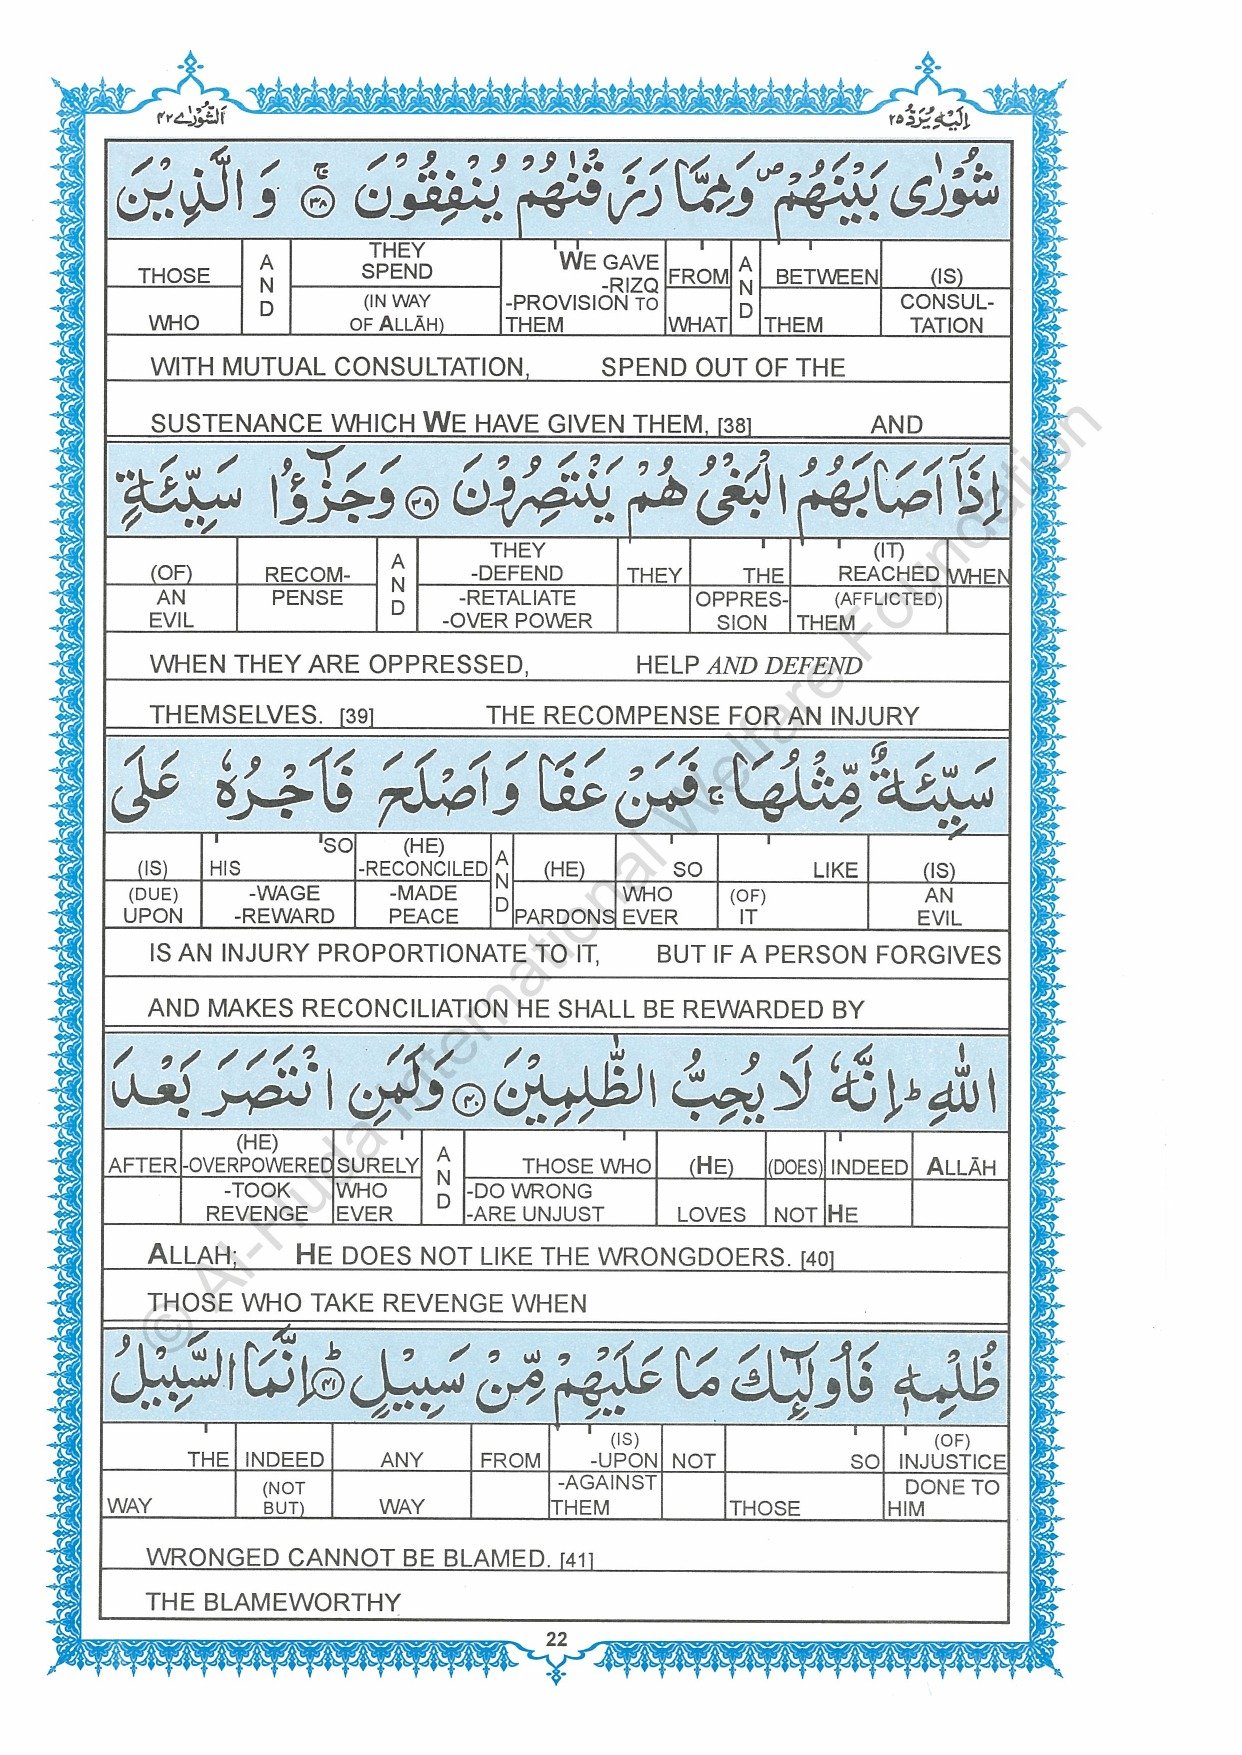 الشورٰے ٤٢
اليه يرد ٢٥
شُوْرٰى بَيْنَهُمْ ۖ وَمِمَّا رَزَقْنٰهُمْ يُنْفِقُوْنَ ۚ ﴿٣٨﴾ وَالَّذِيْنَ
THOSE AND THEY SPEND WE GAVE -RIZQ FROM AND BETWEEN (IS)
WHO (IN WAY OF ALLĀH) -PROVISION TO THEM WHAT THEM CONSUL-TATION
WITH MUTUAL CONSULTATION, SPEND OUT OF THE
SUSTENANCE WHICH WE HAVE GIVEN THEM, [38] AND
اِذَآ اَصَابَهُمُ الْبَغْىُ هُمْ يَنْتَصِرُوْنَ ﴿٣٩﴾ وَجَزٰٓؤُا سَيِّئَةٍ
(OF) RECOM- AND THEY -DEFEND THEY THE (IT) REACHED WHEN
AN EVIL PENSE -RETALIATE -OVER POWER OPPRES-SION (AFFLICTED) THEM
WHEN THEY ARE OPPRESSED, HELP AND DEFEND
THEMSELVES. [39] THE RECOMPENSE FOR AN INJURY
سَيِّئَةٌ مِّثْلُهَا ۚ فَمَنْ عَفَا وَاَصْلَحَ فَاَجْرُهٗ عَلَى
(IS) HIS SO (HE) -RECONCILED AND (HE) SO LIKE (IS)
(DUE) UPON -WAGE -REWARD -MADE PEACE PARDONS WHO EVER (OF) IT AN EVIL
IS AN INJURY PROPORTIONATE TO IT, BUT IF A PERSON FORGIVES
AND MAKES RECONCILIATION HE SHALL BE REWARDED BY
اللّٰهِ ؕ اِنَّهٗ لَا يُحِبُّ الظّٰلِمِيْنَ ﴿٤٠﴾ وَلَمَنِ انْتَصَرَ بَعْدَ
AFTER (HE) -OVERPOWERED SURELY AND THOSE WHO (HE) (DOES) INDEED ALLĀH
-TOOK REVENGE WHO EVER -DO WRONG -ARE UNJUST LOVES NOT HE
ALLAH; HE DOES NOT LIKE THE WRONGDOERS. [40]
THOSE WHO TAKE REVENGE WHEN
ظُلْمِهٖ فَاُولٰٓئِكَ مَا عَلَيْهِمْ مِّنْ سَبِيْلٍ ؕ ﴿٤١﴾ اِنَّمَا السَّبِيْلُ
THE INDEED ANY FROM (IS) -UPON NOT SO (OF) INJUSTICE
WAY (NOT BUT) WAY -AGAINST THEM THOSE DONE TO HIM
WRONGED CANNOT BE BLAMED. [41]
THE BLAMEWORTHY
22
© Al-Huda International Welfare Foundation